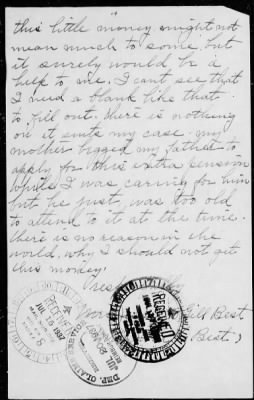 this little money might not
mean much to some, but
it surely would be a
help to me. I cant see that
I need a blank like that
to fill out. there is nothing
on it suits my case. my
mother begged my father to
apply for this extra pension
while I was caring for him
but he just, was too old
to attend to it at the time.
there is no reason in the
world, why I should not get
this money.
Best
Best)
RECEIVED
JUL
RECEIVED
DEP. CLAIMS